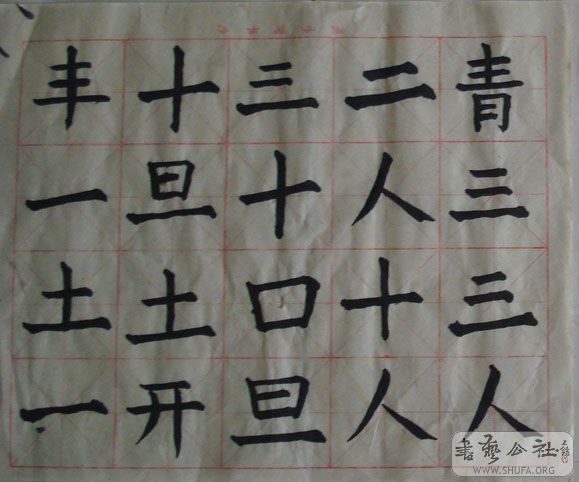 青三三人
二人十人
三十口旦
十旦土开
丰一土一
書藝公社
WWW.SHUFA.ORG